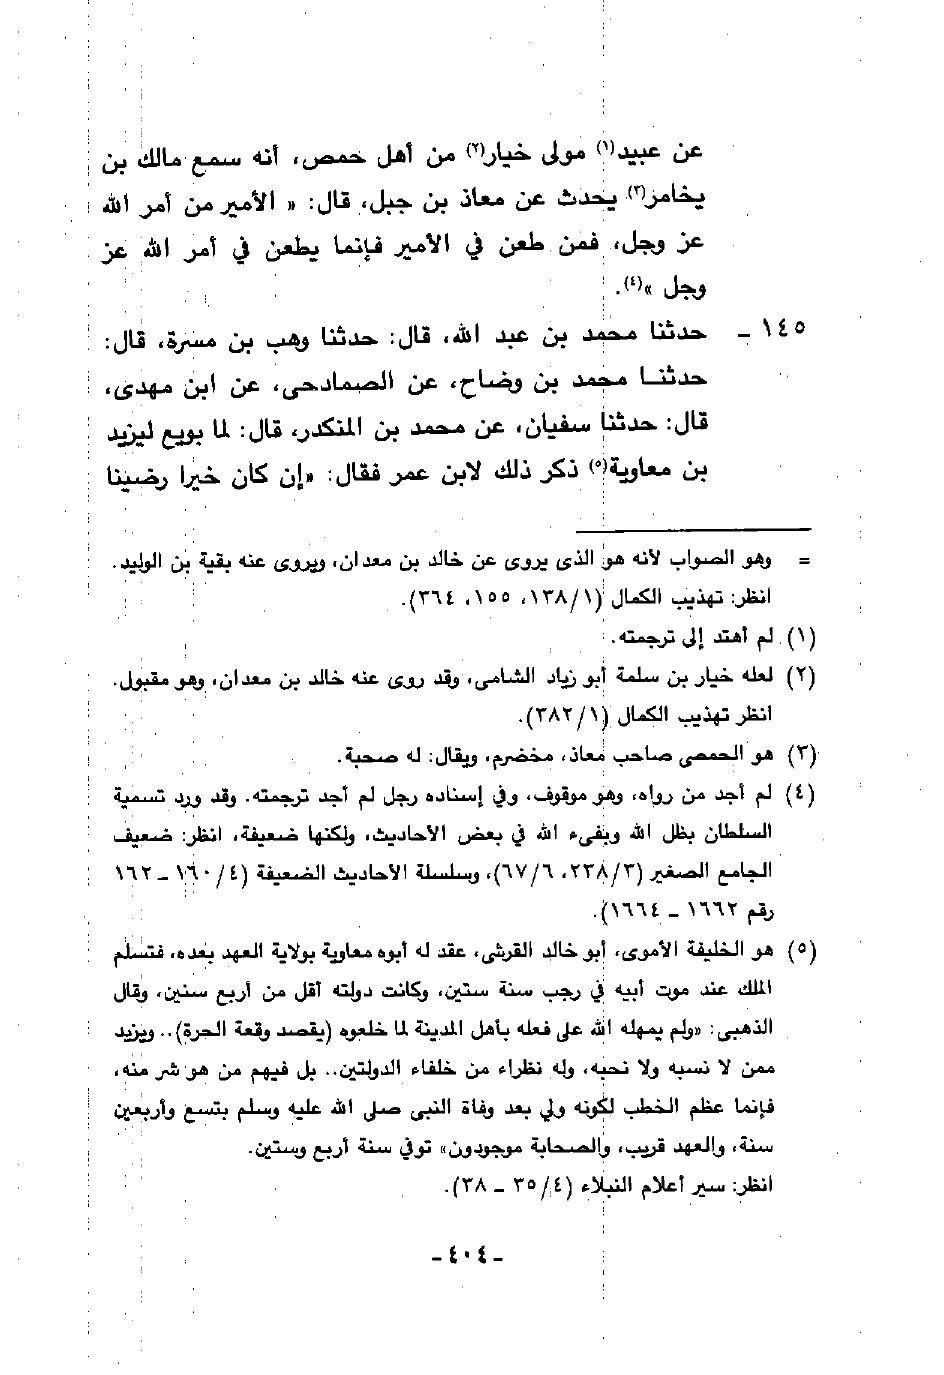 عن عبيد(١) مولى خيار(٢) من أهل حمص، أنه سمع مالك بن
يخامر(٣) يحدث عن معاذ بن جبل، قال: « الأمير من أمر الله
عز وجل، فمن طعن في الأمير فإنما يطعن في أمر الله عز
وجل »(٤).
١٤٥ – حدثنا محمد بن عبد الله، قال: حدثنا وهب بن مسرة، قال:
حدثنا محمد بن وضاح، عن الصمادحى، عن ابن مهدى،
قال: حدثنا سفيان، عن محمد بن المنكدر، قال: لما بويع ليزيد
بن معاوية(٥) ذكر ذلك لابن عمر فقال: «إن كان خيرا رضينا
= وهو الصواب لأنه هو الذى يروى عن خالد بن معدان، ويروى عنه بقية بن الوليد.
انظر: تهذيب الكمال (١٣٨/١، ١٥٥، ٣٦٤).
(١) لم أهتد إلى ترجمته.
(٢) لعله خيار بن سلمة أبو زياد الشامى، وقد روى عنه خالد بن معدان، وهو مقبول.
انظر تهذيب الكمال (٣٨٢/١).
(٣) هو الحمصى صاحب معاذ، مخضرم، ويقال: له صحبة.
(٤) لم أجد من رواه، وهو موقوف، وفي إسناده رجل لم أجد ترجمته. وقد ورد تسمية
السلطان بظل الله وبفىء الله في بعض الأحاديث، ولكنها ضعيفة، انظر: ضعيف
الجامع الصغير (٢٣٨/٣، ٦٧/٦)، وسلسلة الأحاديث الضعيفة (٤/ ١٦٠ – ١٦٢
رقم ١٦٦٢ – ١٦٦٤).
(٥) هو الخليفة الأموى، أبو خالد القرشى، عقد له أبوه معاوية بولاية العهد بعده، فتسلم
الملك عند موت أبيه في رجب سنة ستين، وكانت دولته أقل من أربع سنين، وقال
الذهبى: «ولم يمهله الله على فعله بأهل المدينة لما خلعوه (يقصد وقعة الحرة).. ويزيد
ممن لا نسبه ولا نحبه، وله نظراء من خلفاء الدولتين.. بل فيهم من هو شر منه،
فإنما عظم الخطب لكونه ولي بعد وفاة النبى صلى الله عليه وسلم بتسع وأربعين
سنة، والعهد قريب، والصحابة موجودون» توفي سنة أربع وستين.
انظر: سير أعلام النبلاء (٤/ ٣٥ – ٣٨).
– ٤٠٤ –